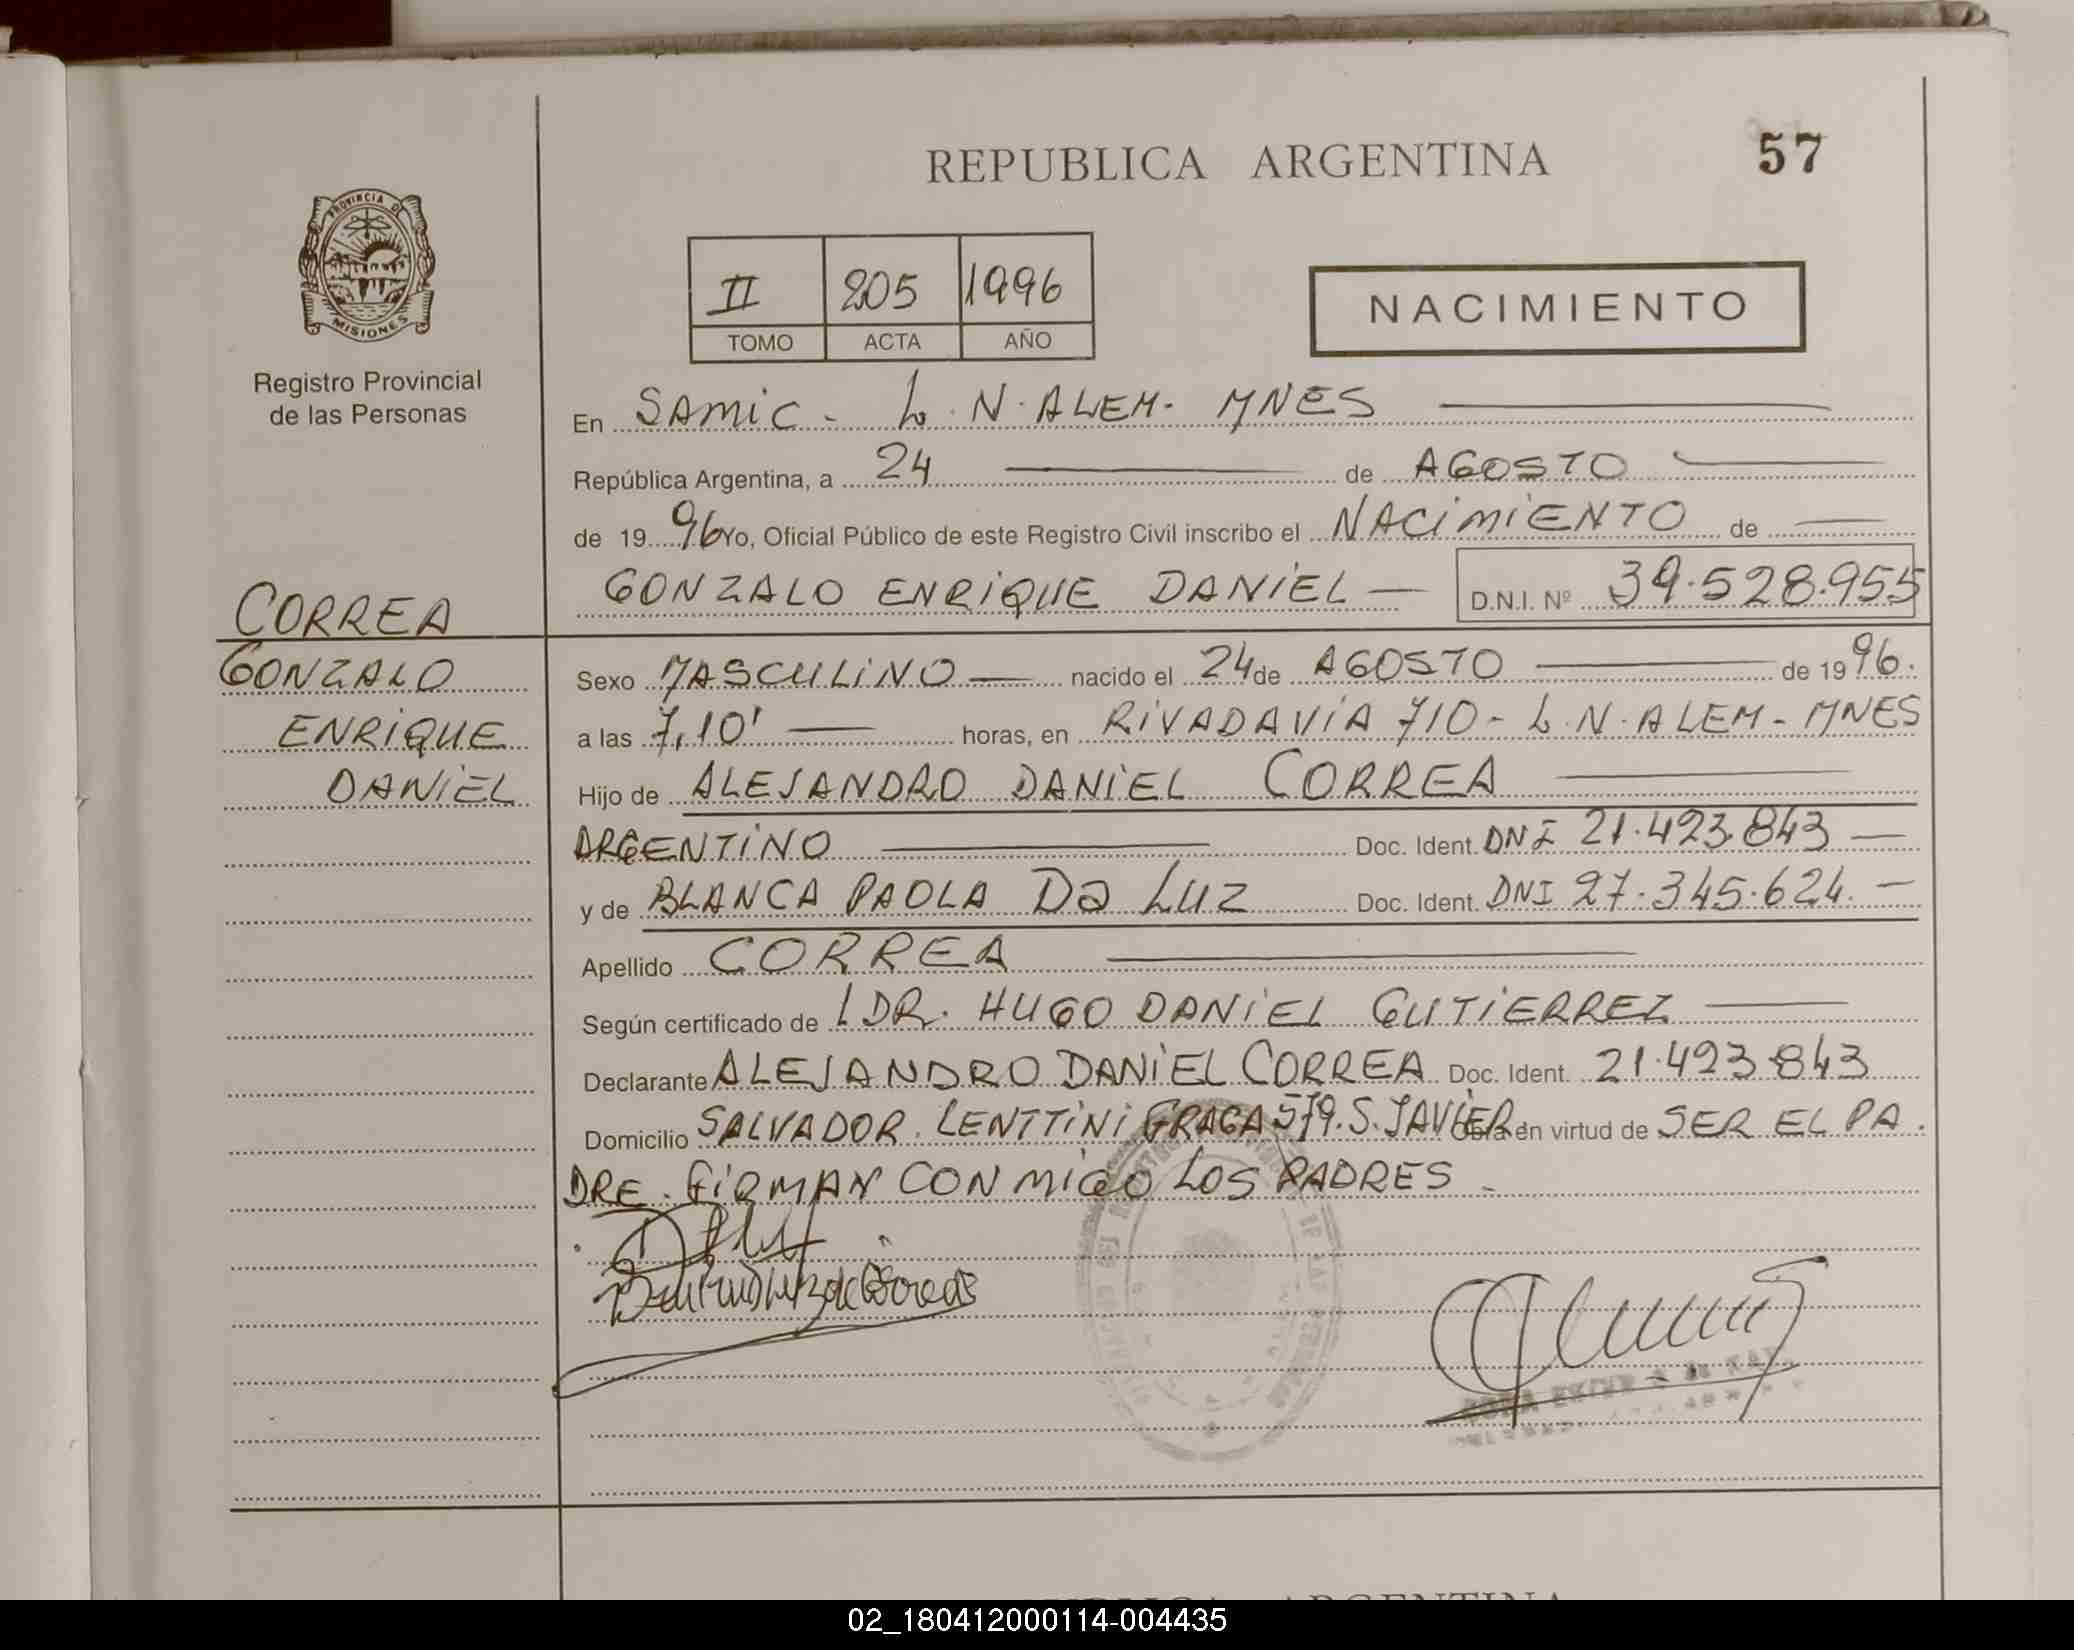 REPUBLICA ARGENTINA
57
PROVINCIA DE
MISIONES
Registro Provincial
de las Personas
II 205 1996
TOMO ACTA AÑO
NACIMIENTO
En SAMIC - L. N. ALEM - MNES
República Argentina, a 24 de AGOSTO
de 19 96 Yo, Oficial Público de este Registro Civil inscribo el NACIMIENTO de
GONZALO ENRIQUE DANIEL — D.N.I. Nº 39.528.955
CORREA
GONZALO
ENRIQUE
DANIEL
Sexo MASCULINO — nacido el 24 de AGOSTO de 19 96.
a las 7,10' horas, en RIVADAVIA 710 - L. N. ALEM - MNES
Hijo de ALEJANDRO DANIEL CORREA
ARGENTINO Doc. Ident. DNI 21.423.843 —
y de BLANCA PAOLA Da LUZ Doc. Ident. DNI 27.345.624. —
Apellido CORREA
Según certificado de LDR. HUGO DANIEL GUTIERREZ
Declarante ALEJANDRO DANIEL CORREA Doc. Ident. 21.423.843
Domicilio SALVADOR LENTTINI FRAGA 579. S. JAVIER Obra en virtud de SER EL PA.
DRE. FIRMAN CONMIGO LOS PADRES -
02_180412000114-004435